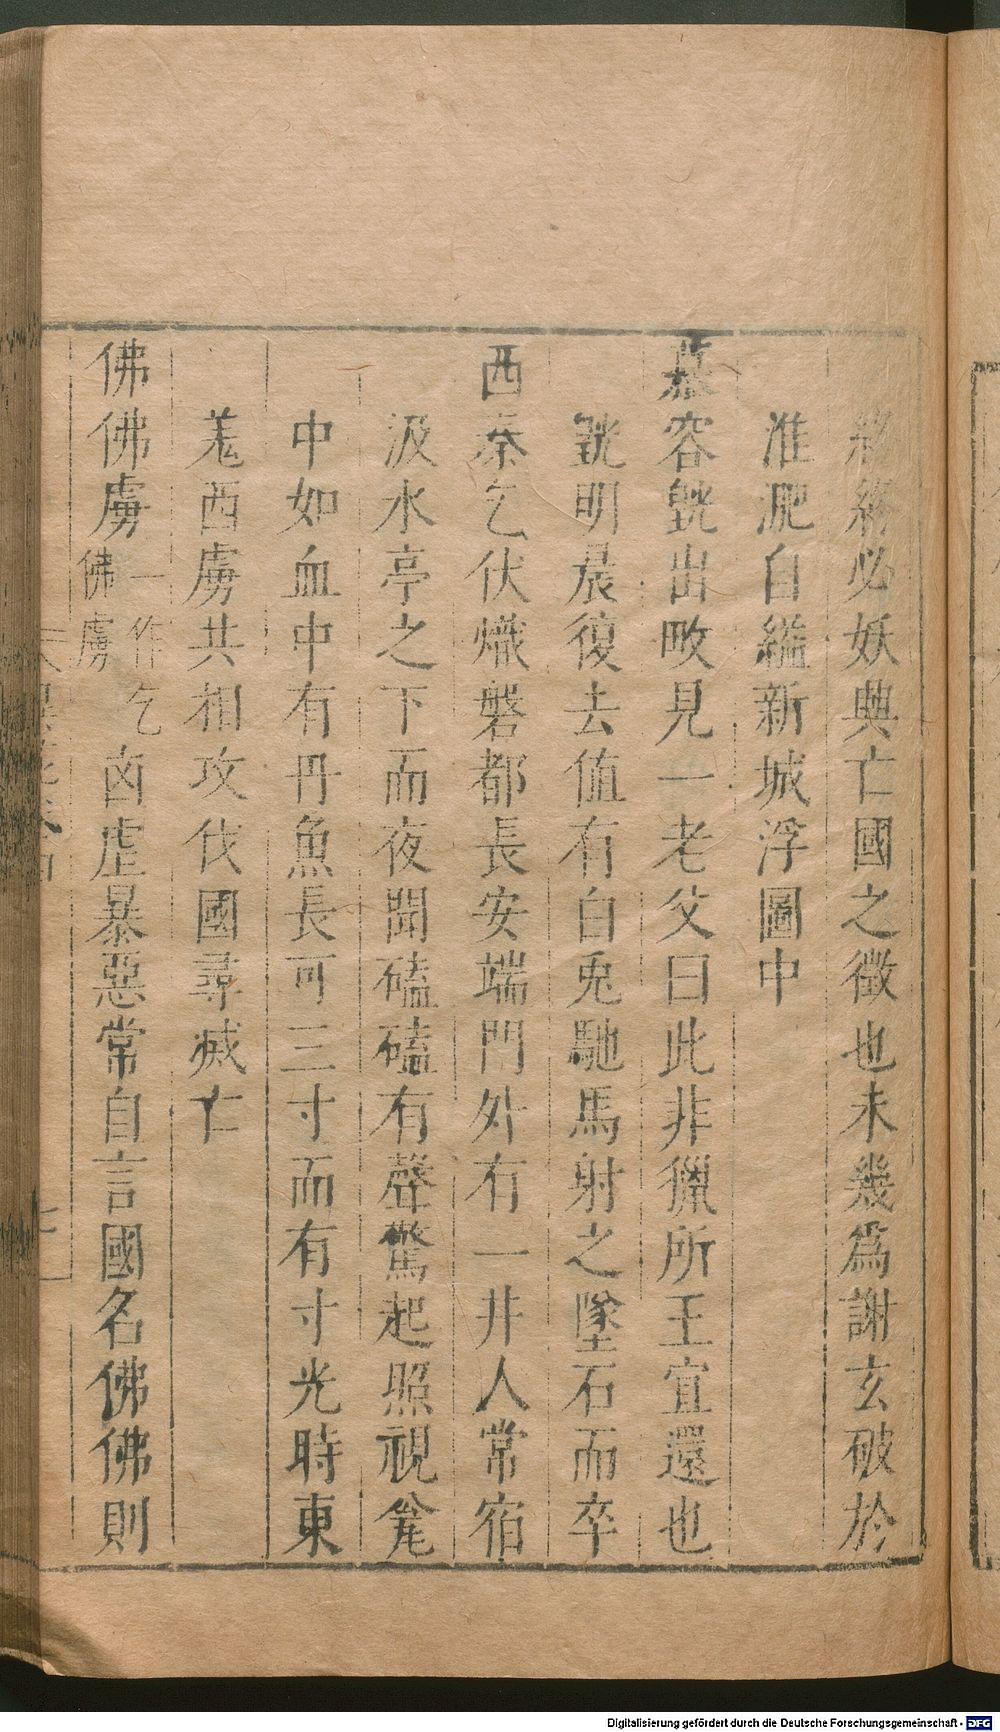 終終必妖興亡國之徵也未幾爲謝玄破於
淮淝自縊新城浮圖中
慕容皝出畋見一老父曰此非獵所王宜還也
皝明晨復去值有白兎馳馬射之墜石而卒
西秦乞伏熾磐都長安端門外有一井人常宿
汲水亭之下而夜聞磕磕有聲驚起照視瓮
中如血中有丹魚長可三寸而有寸光時東
羗西虜共相攻伐國尋滅亡
佛佛虜一作乞佛虜凶虐暴惡常自言國名佛佛則
Digitalisierung gefördert durch die Deutsche Forschungsgemeinschaft - DFG